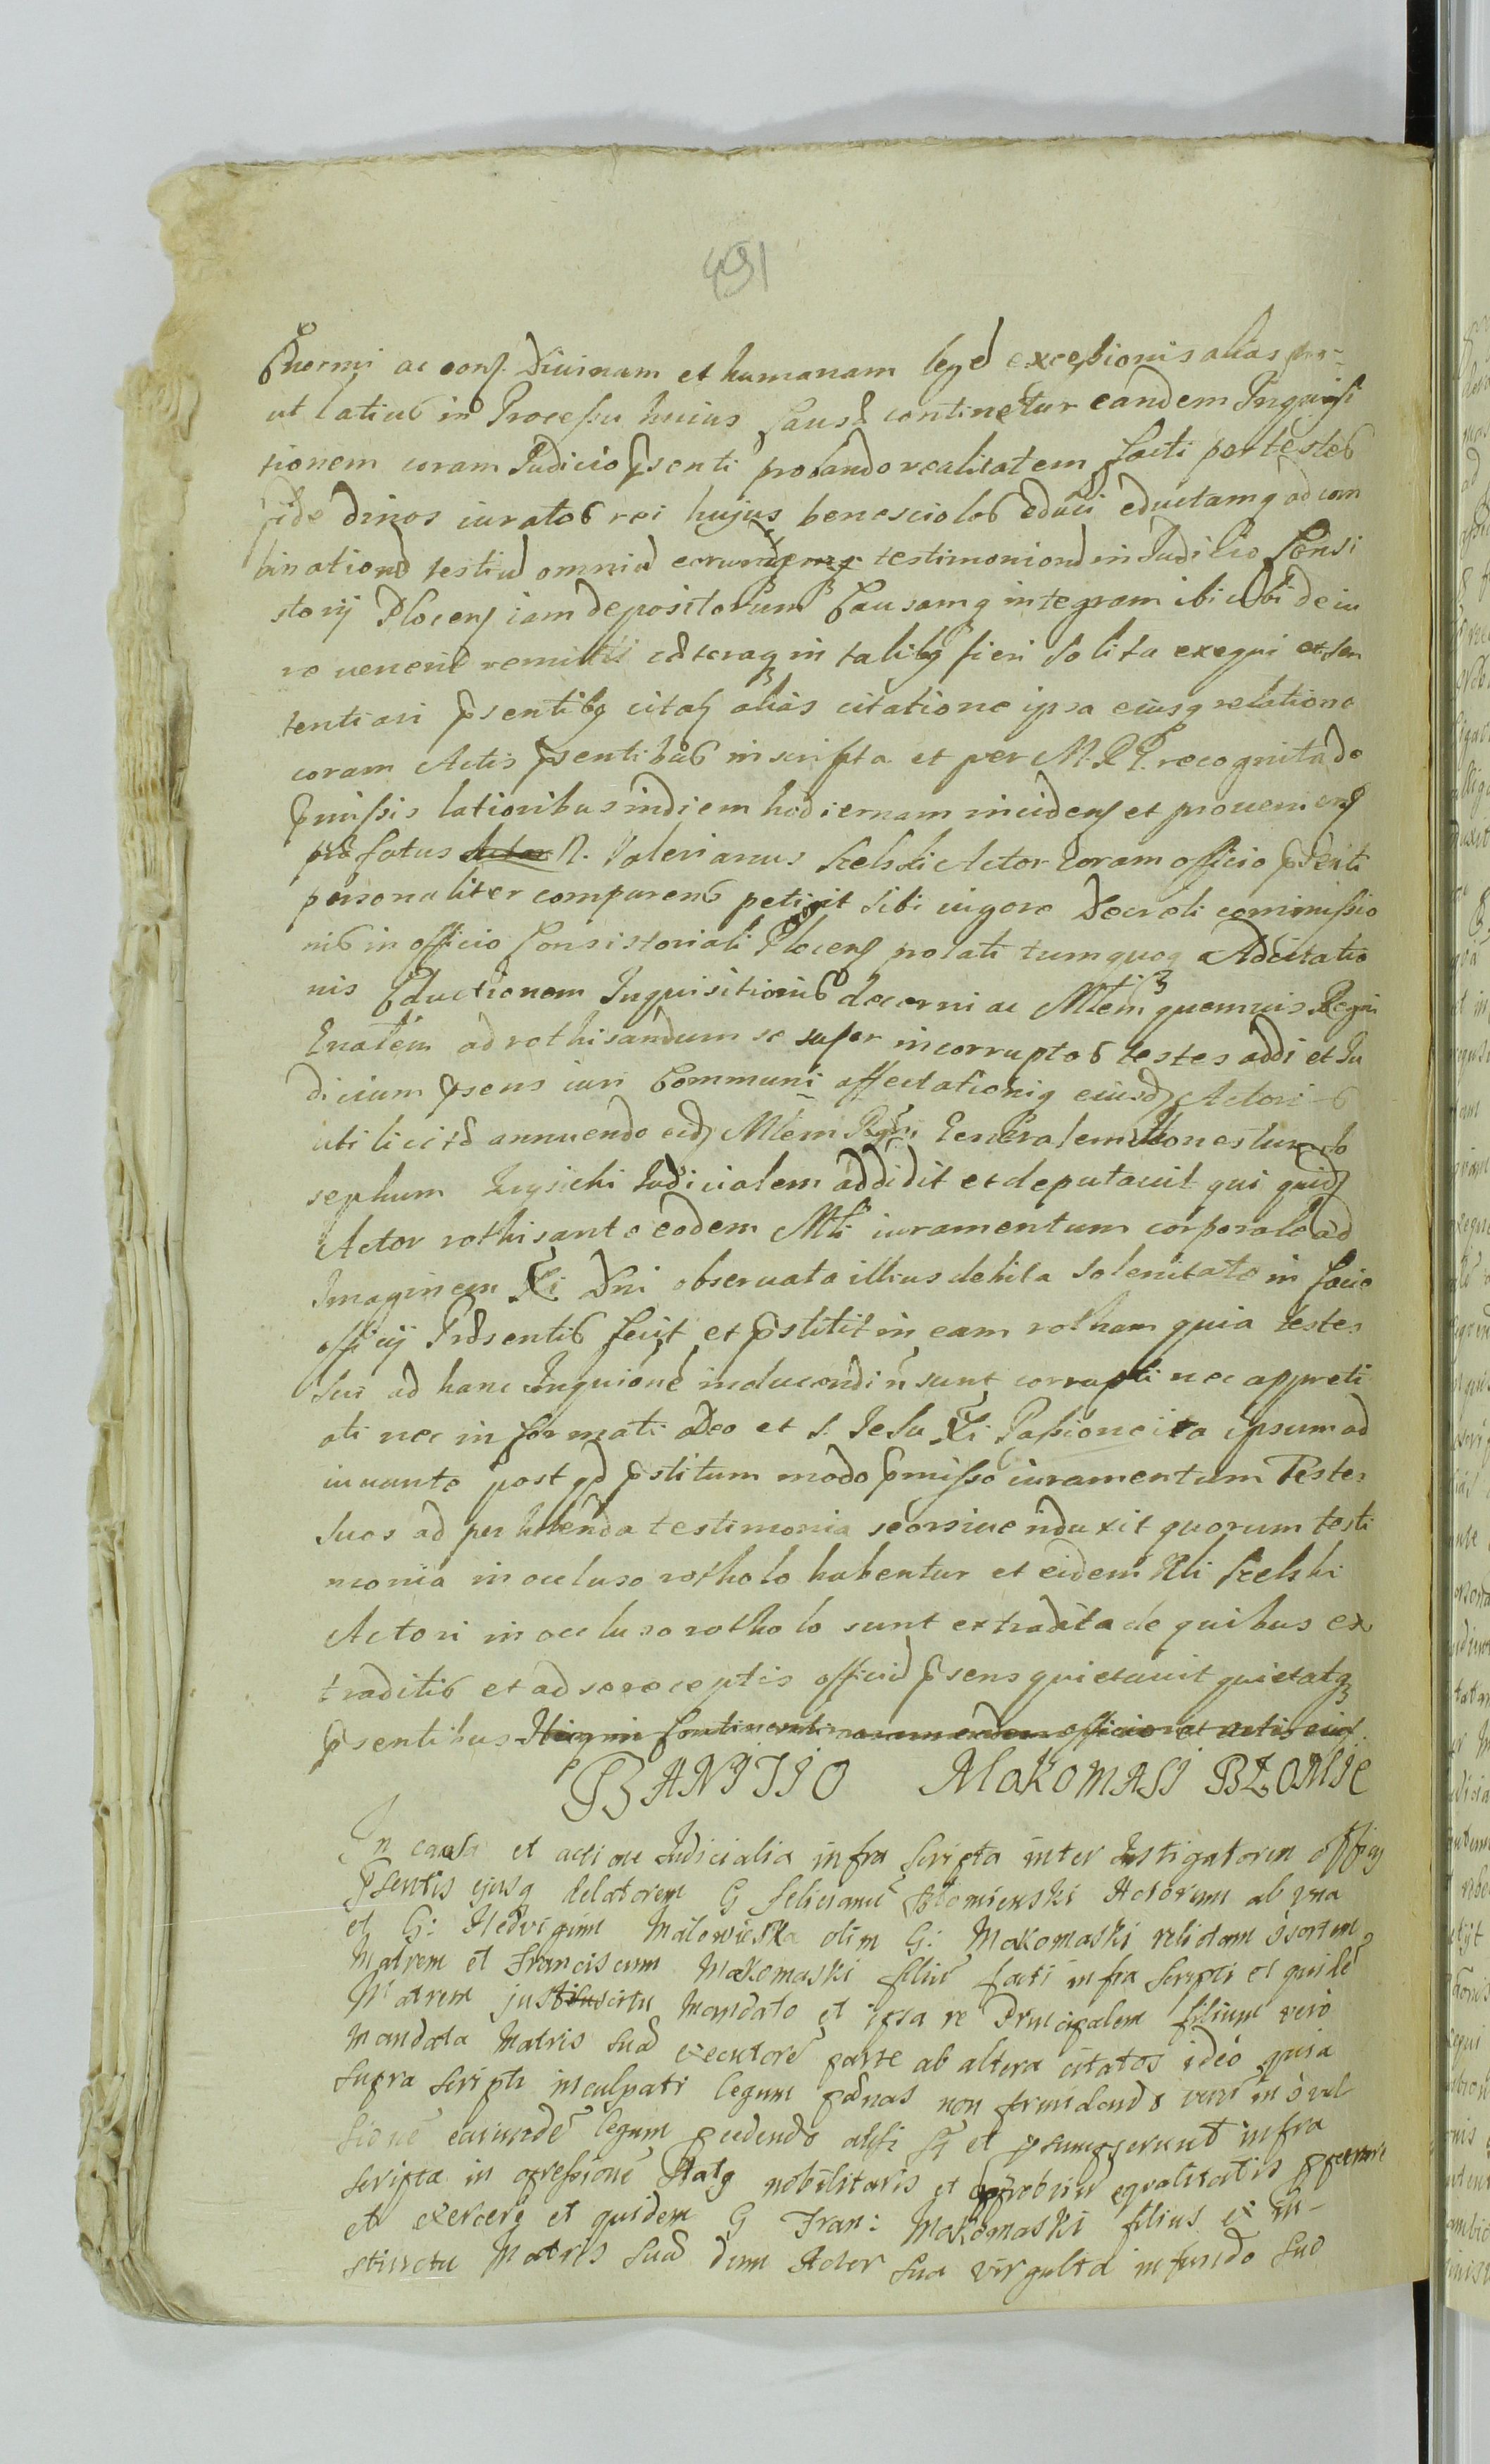 491
ac conf. Diuinam et humanam legem excepsionis alias
ut latius in Processu huius Causae continetur eandem Inquisi
tionem coram Judicio psenti probando realitatem facti per testes
fide dinos iuratos rei hujus benescios educi eductamq ad com
binationem testium omnium testimoniorum in Judicio Consi
storij Plocens iam depositorum Causamq integram ibi ubi de iu
re uenerit remitti caeteraq in talibq fieri solita exequi et sen
tentiari psentibq citat alias citatione ipsa eiusq relatione
coram Actis psentibus inscripta et per M. R. recognita de
pmissis latioribus in diem hodiernam incidens et proueniens
praefatus N. Valerianus Kelski Actor coram officio psenti
personaliter comparens petijit sibi uigore Decreti commissio
nis in officio Consistoriali Plocens prolati tum quoq Adcitatio
nis Eductionem Inquisitionis decerni ac Mlem quemuis Regni
Gnalem ad rothisandum se super incorruptos testes addi et Ju
dicium psens iuri Communi affectationiq eiusd Actoris
uti licitae annuendo eid Mlem Regni Generalem Honestum Jo
sephum Judicialem addidit et deputauit qui quid
Actor rothisante eodem Mli iuramentum corporale ad
Imaginem Xi Dni obseruata illius debita solenitate in facie
officij Praesentis fecit et pstitit in eam rotham quia testes
sui ad hanc Inquione inducendi n sunt corrupti nec appreti
ati nec informati a Deo et s. Jesu Xi Passione ita ipsum ad
iuuante post qd pstitum modo pmisso iuramentum Testes
suos ad perhibenda testimonia seorsiue induxit quorum testi
monia in occluso rotholo habentur et eidem Nli Kelski
Actori in occluso rotholo sunt extradita de quibus ex
traditis et ad se receptis officium psens quietauit quietatq
psentibus Itaq in Continenti coram eodem officio et actis eius
BANITIO MAKOMASI BŁOMIE
In causa et actione Judicialia infra scripta inter Instigatorem officij
Psentis ejusq delatorem G Felicianu Błomienski Actorum ab una
et G: Hedvigim olim G: Makomaski relictam Uxorem
Matrem et Franciscum Makomaski filiu facti infra scripti et quide
Matrem mandato et ipsa re Principalem filium vero
Mandata Matris suae executore parte ab altera citatos ideo quia
supra scripti inculpati legum paenas non formidando
sione earunde legum et psumpserunt infra
scripta in opressione Statq nobilitaris et opprobriu equalitatis
et exercere et quidem G Fran: Makomaski filius ex in-
stinctu Matris suae dum Actor sua virgulta in fundo suo